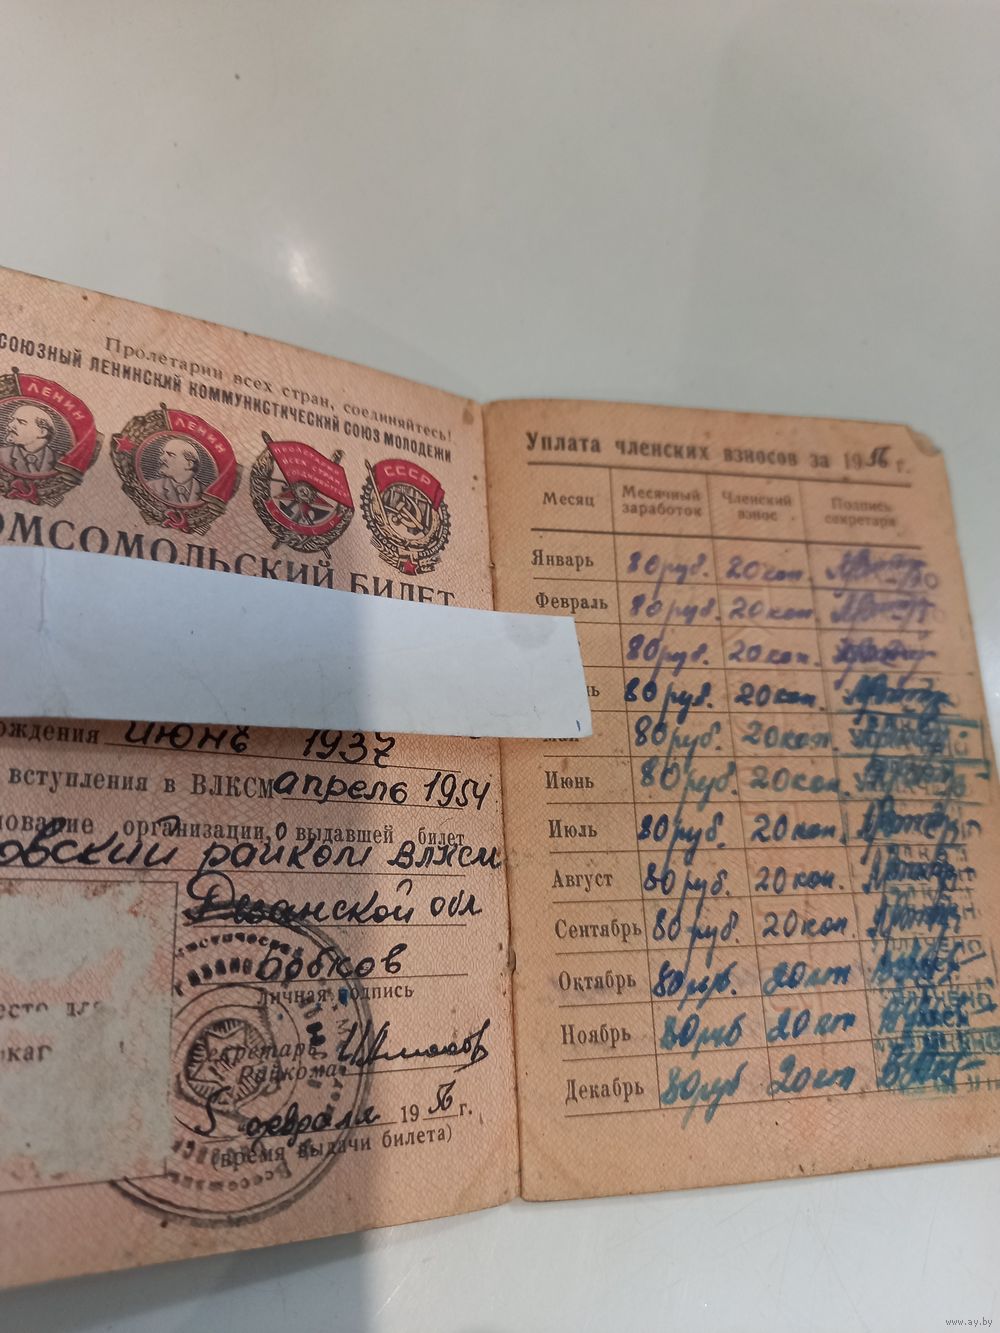 Пролетарии всех стран, соединяйтесь!
СОЮЗНЫЙ ЛЕНИНСКИЙ КОММУНИСТИЧЕСКИЙ СОЮЗ МОЛОДЕЖИ
ЛЕНИН
ЛЕНИН
ПРОЛЕТАРИИ ВСЕХ СТРАН СОЕДИНЯЙТЕСЬ
СССР
ОМСОМОЛЬСКИЙ БИЛЕТ
ождения июнь 1937
вступления в ВЛКСМ апрель 1954
нование организации, выдавшей билет
овский райком ВЛКСМ
Рязанской обл
Бобков
личная подпись
есто для
Секретарь
Райкома
5 февраля 1956 г.
(время выдачи билета)
Уплата членских взносов за 1956 г.
Месяц Месячный заработок Членский взнос Подпись секретаря
Январь 80 руб. 20 коп.
Февраль 80 руб. 20 коп.
80 руб. 20 коп.
ь 80 руб. 20 коп.
Май 80 руб. 20 коп.
Июнь 80 руб. 20 коп.
Июль 80 руб. 20 коп.
Август 80 руб. 20 коп.
Сентябрь 80 руб. 20 коп.
Октябрь 80 руб. 20 кт
Ноябрь 80 руб 20 кт
Декабрь 80 руб 20 кт
www.ay.by